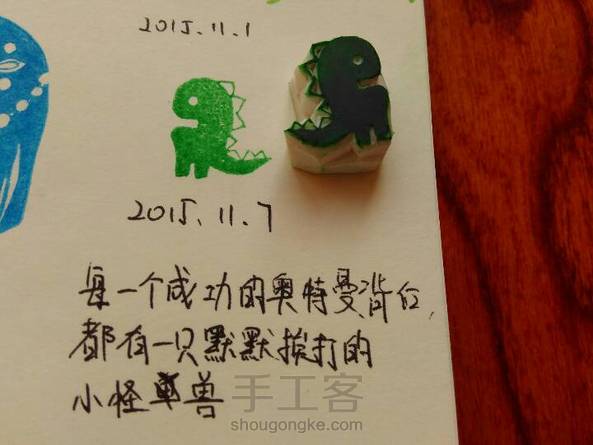 2015.11.1
2015.11.7
每一个成功的奥特曼背后,
都有一只默默挨打的
小怪兽
手工客
shougongke.com